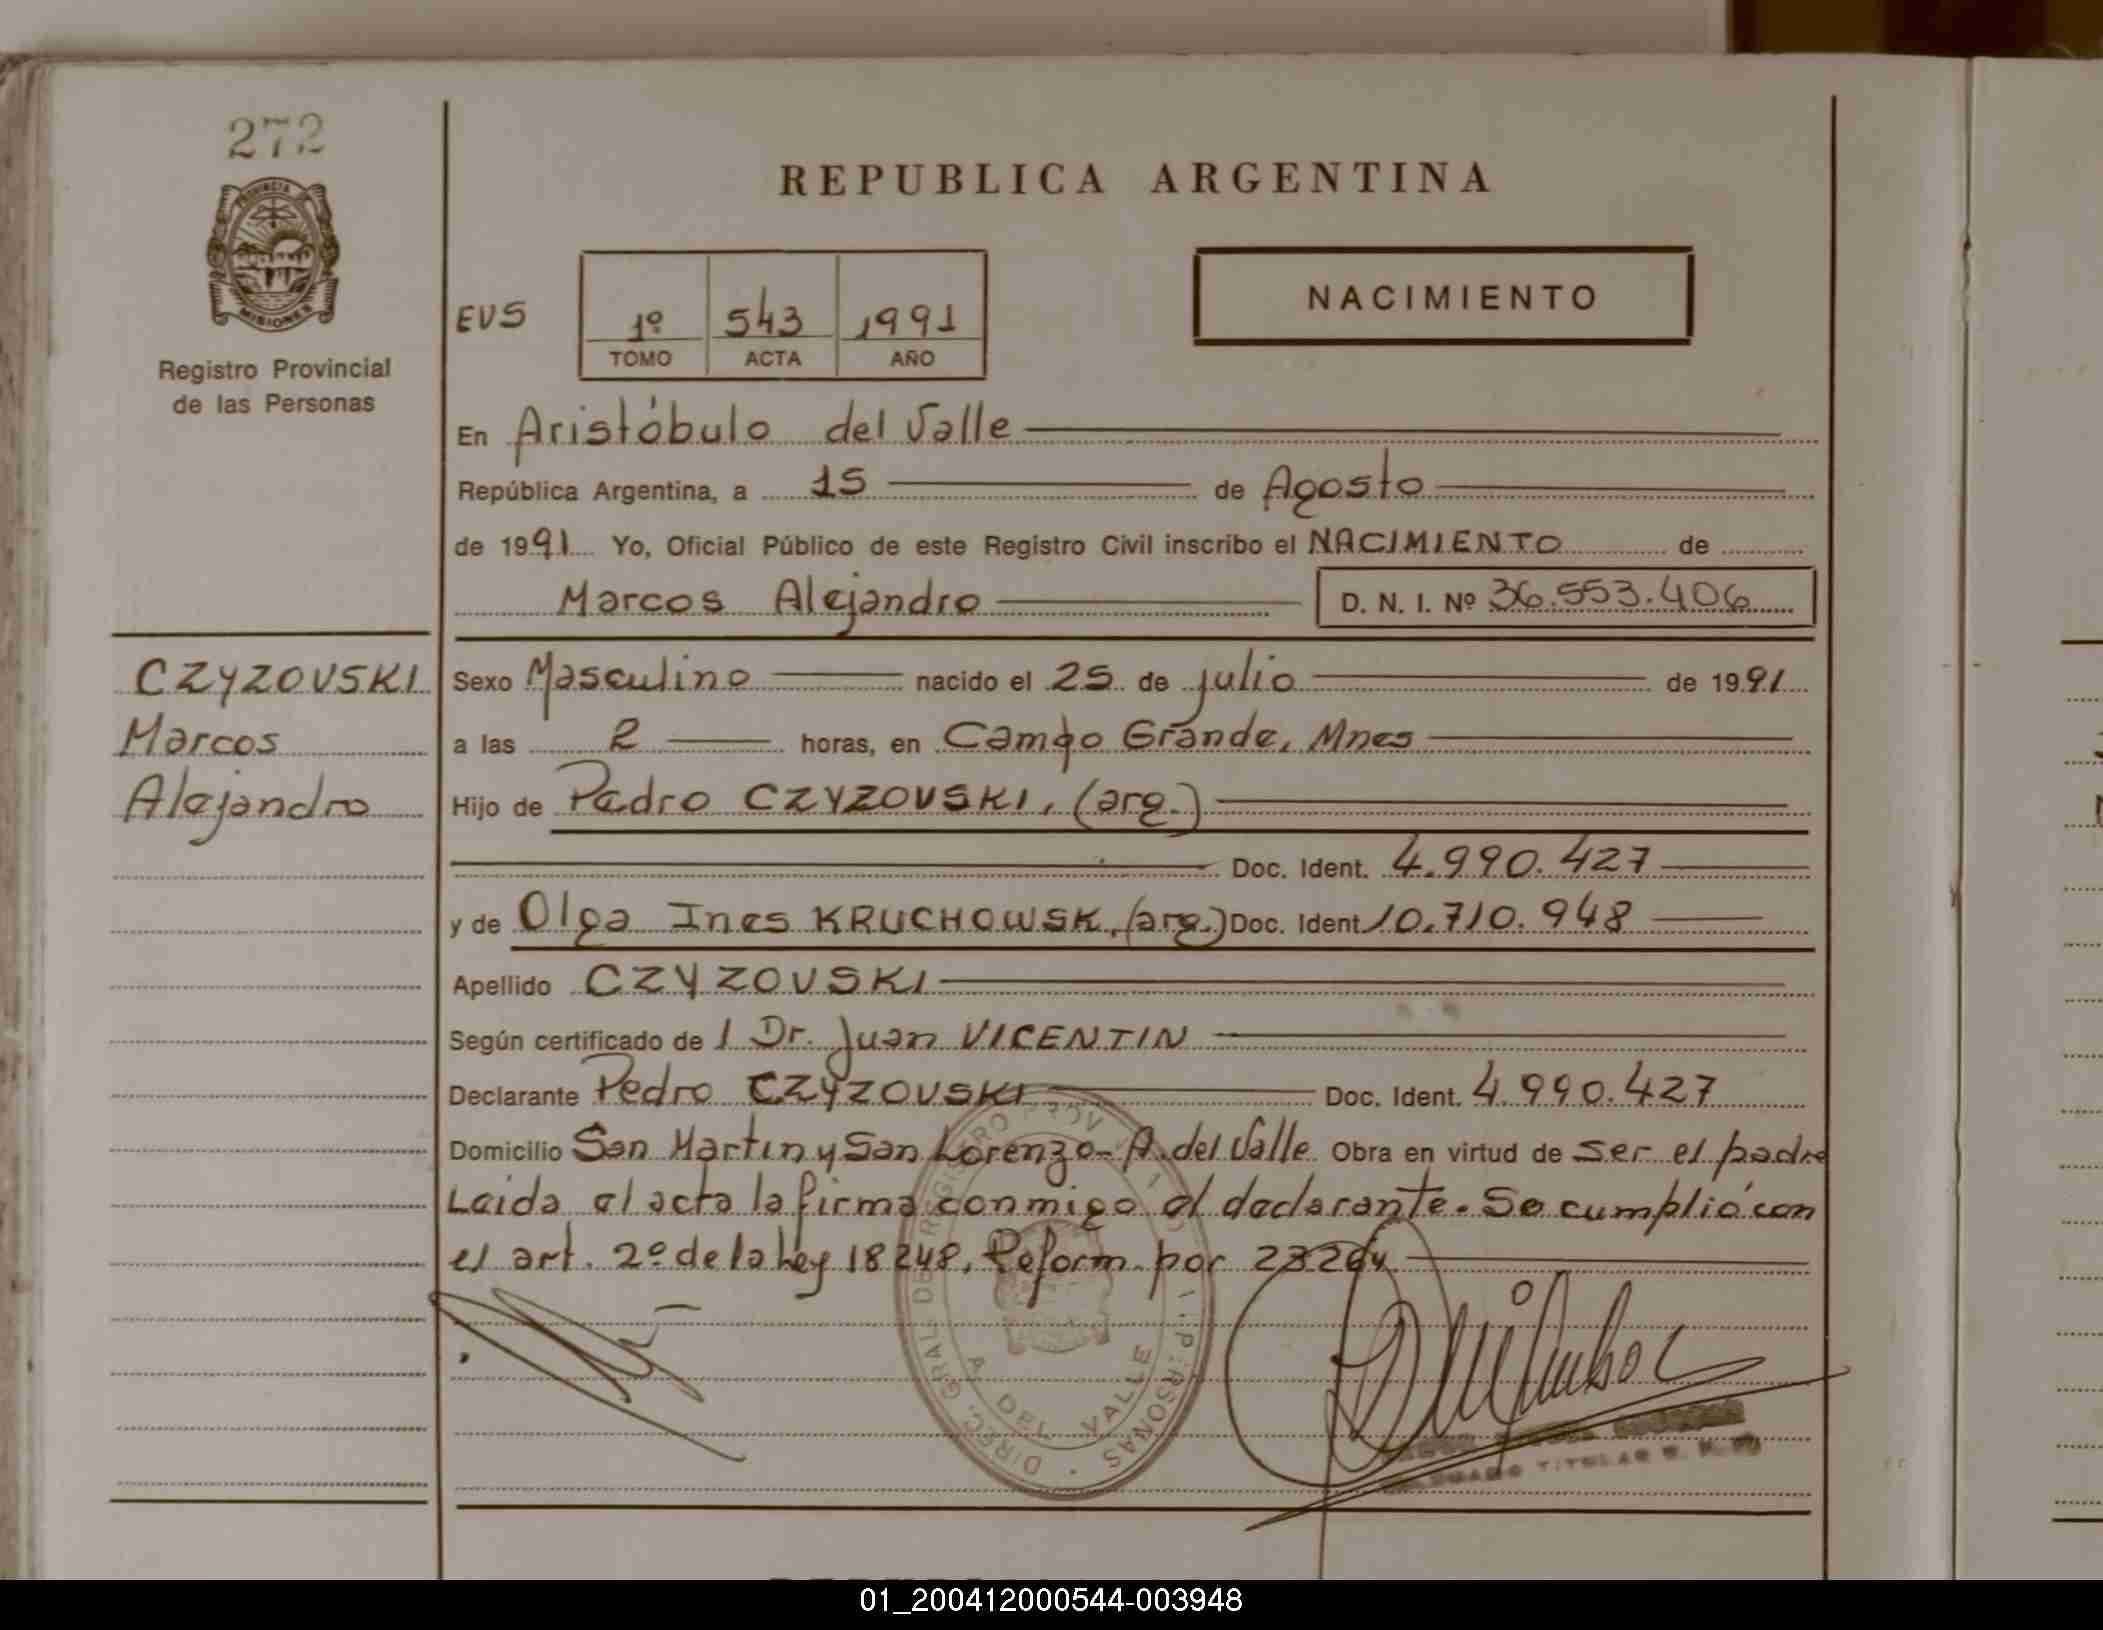 272
PROVINCIA DE
MISIONES
Registro Provincial
de las Personas
REPUBLICA ARGENTINA
EVS
1º 543 1991
TOMO ACTA AÑO
NACIMIENTO
En Aristóbulo del Valle
República Argentina, a 15 de Agosto
de 1991 Yo, Oficial Público de este Registro Civil inscribo el NACIMIENTO de
Marcos Alejandro D. N. I. Nº 36.553.406
CZYZOVSKI
Marcos
Alejandro
Sexo Masculino nacido el 25 de julio de 1991
a las 2 horas, en Campo Grande, Mnes
Hijo de Pedro CZYZOVSKI, (arg.)
Doc. Ident. 4.990.427
y de Olga Ines KRUCHOWSK, (arg.) Doc. Ident 10.710.948
Apellido CZYZOVSKI
Según certificado de l Dr. Juan VICENTIN
Declarante Pedro CZYZOVSKI Doc. Ident. 4.990.427
Domicilio San Martin y San Lorenzo - A. del Valle Obra en virtud de ser el padre
Leida el acta la firma conmigo el declarante. Se cumplió con
el art. 2º de la Ley 18248, Reform. por 23264
DIREC. GRAL. DE REGISTRO PERSONAS
A. DEL VALLE
TITULAR
01_200412000544-003948